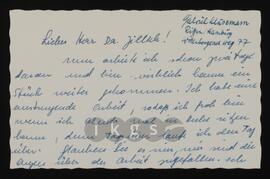 Gabriel
Hamburg
weg 77
Lieber Herr Dr. Zillich!
nun arbeite ich schon zwei Tage
daran und bin wirklich kaum ein
Stück weiter gekommen. Ich habe eine
anstrengende Arbeit, sodass ich froh bin
wenn ich abends mal in Ruhe sitzen
kann, denn laufe ich den Tag
über. glauben Sie es mir, mir sind die
Augen über der Arbeit zugefallen.
ikgs